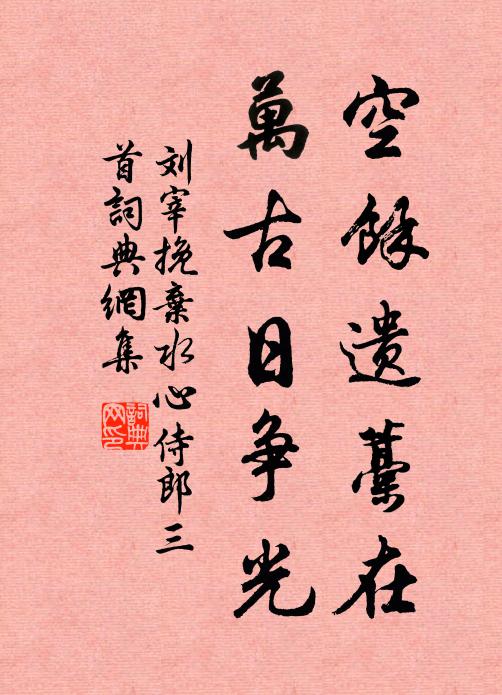 空餘遗藁在
萬古日争光
刘宰挽棄水心侍郎三
首詞典網集
詞典网印